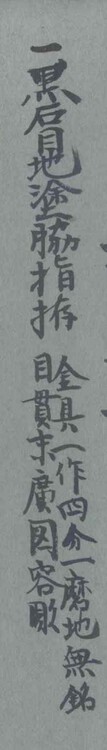 一黒石目地塗脇指拵
金具一作四分一磨地無銘
目貫末廣図容彫